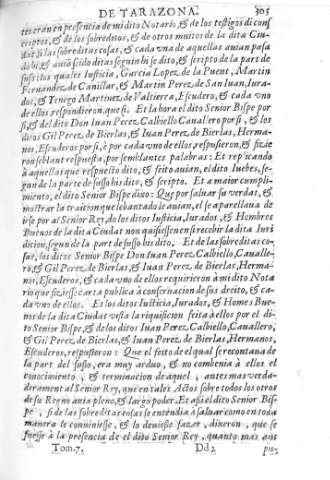 DE TARAZONA. 305
tes eran en presentia de mi dito Notario, & de los testigos di cons
criptos, & de los sobreditos, & de otros muitos de la dita Ciu-
dat. Las sobreditas cosas, & cada vna de aquellas auian pasa
do si, & auia seido ditas segun bi se dito, & scripto de la part de
suso: los quales Iusticia, Garcia Lopez de la Puent, Martin
Fernandez de Canillar, & Martin Perez de San Iuan, Iura-
dos, & Yenego Martinez de Valtierra, Escudero, & cada vno
de ellos respondieron que si. Et la hora el dito Senor Bispe por
si, & el dito Don Iuan Perez Calbiello Cauallero por si, & los
ditos Gil Perez de Bierlas, & Iuan Perez de Bierlas, Herma-
nos, Escuderos por si, è por cada vno de ellos respusieron, & fizie
ron semblant respuesta, por semblantes palabras: Et repicando
à aquellas que respuesto dito, & feito auian, el dito Iuebes, se-
gun de la parte de susso his dito, & scripto. Et a maior cumpli-
miento, el dito Senor Bispe dixo: Que por saluar su verdat, &
mostrar la traicion que leuantado le auian, el se aparellaua de
irse por al Senor Rey, do los ditos Iusticia, Iurados, & Hombres
Buenos de la dita Ciudat non quisiessen ensi recibir la dita Iuri
dicion, segun de la part de susso his dito. Et de las sobreditas co-
sas, los ditos Senor Bispe Don Iuan Perez Calbiello, Caualle-
ro, & Gil Perez de Bierlas, & Iuan Perez de Bierlas, Herma-
nos, Escuderos, & cada vno de ellos requirieron à mi dito Nota
rio que fiziesse carta publica à conseruacion de sus dreito, & ca-
da vno de ellos. Et los ditos Iusticia, Iurados, & Homes Bue-
nos de la dita Ciudat vista la riquisicion feita à ellos por el di-
to Senor Bispe, & de los ditos Iuan Perez, Calbiello, Cauallero,
& Gil Perez de Bierlas, & Iuan Perez de Bierlas, Hermanos,
Escuderos, respusieron: Que el feito de el qual se recontaua de
la part del susso, era muy arduo, & no combenia à ellos el
conoscimiento, & terminacion de aquel, antes mas verda-
derament al Senor Rey, que en tales Actos sobre todos los otros
de su Regno auia pleno, & largo poder. Et asi el dito Senor Bis-
pe, si de las sobreditas cosas se entendia à saluar como en toda
manera le conuiniesse, & lo deuiesse fazer, dixeron, que se
fuesse à la presencia de el dito Senor Rey, quanto mas ant
Tom. 7. Dd 2 pu-